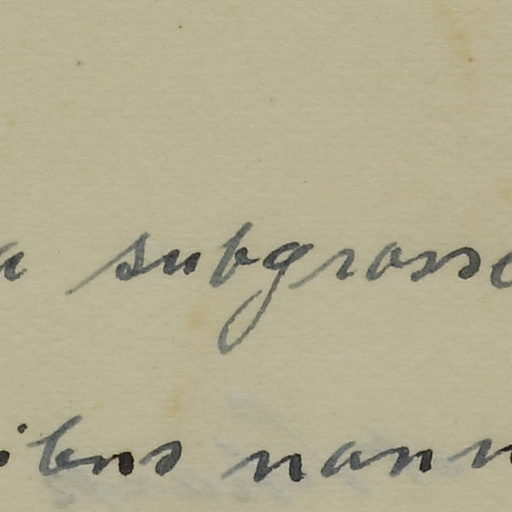 a subgrosse
ibus nonn